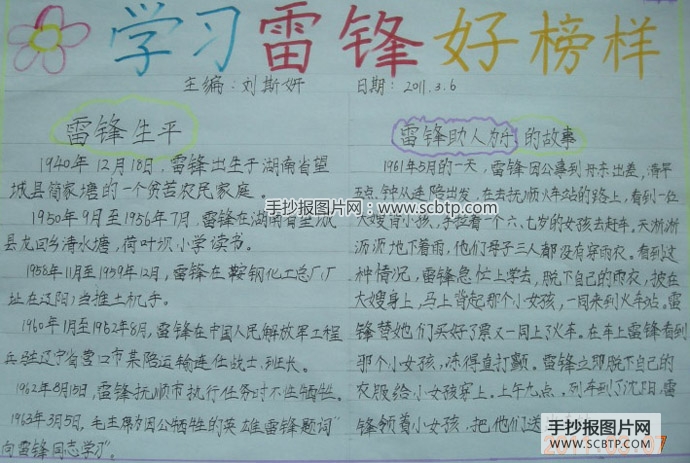 学习雷锋好榜样
主编:刘斯妍
日期:2011.3.6
雷锋生平
1940年12月18日,雷锋出生于湖南省望
城县简家塘的一个贫苦农民家庭。
1950年9月至1956年7月,雷锋在湖南省望城
县龙回乡清水塘,荷叶坝小学读书。
1958年11月至1959年12月,雷锋在鞍钢化工总厂(厂
址在辽阳)当推土机手。
1960年1月至1962年8月,雷锋在中国人民解放军工程
兵驻辽宁省营口市某陪运输连任战士,班长。
1962年8月15日,雷锋抚顺市执行任务时不
1963年3月5日,毛主席为因公牺牲的英雄雷锋题词"
向雷锋同志学习"。
雷锋助人为乐的故事
1961年5月的一天,雷锋因公事到丹东出差,清早
五点钟从连陪出发,在去抚顺火车站的路上,看到一位
大嫂背小孩,手拉着一个六、七岁的女孩去赶车。天淅淅
沥沥地下着雨,他们母子三人都没有穿雨衣。看到这
种情况,雷锋急忙上学去,脱下自己的雨衣,披在
大嫂身上,马上背起那个小女孩,一同来到火车站。雷
锋替她们买好了票又一同上了火车。在车上雷锋看到
那个小女孩,冻得直打颤。雷锋立即脱下自己的
衣服给小女孩穿上。上午九点,列车到了沈阳,雷
锋领着小女孩,把他们送
手抄报图片网:www.scbtp.com
手抄报图片网
WWW.SCBTP.COM